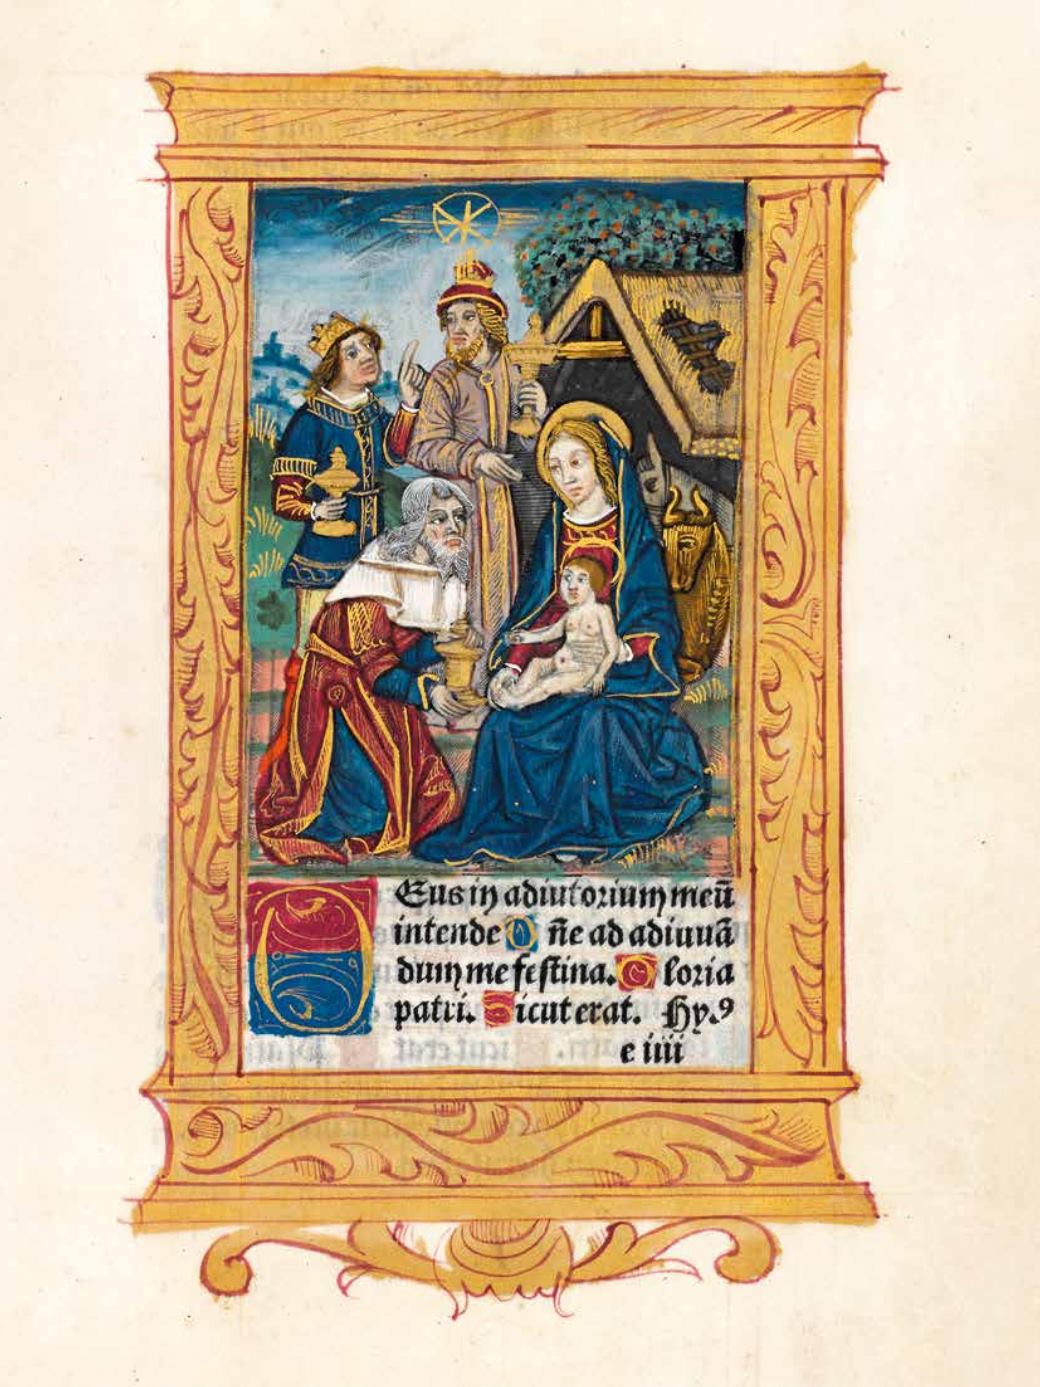 DEus in adiutorium meū
intende Dn̄e ad adiuuā
dum me festina. Gloria
patri. Sicut erat. Hy.⁹
e iiii